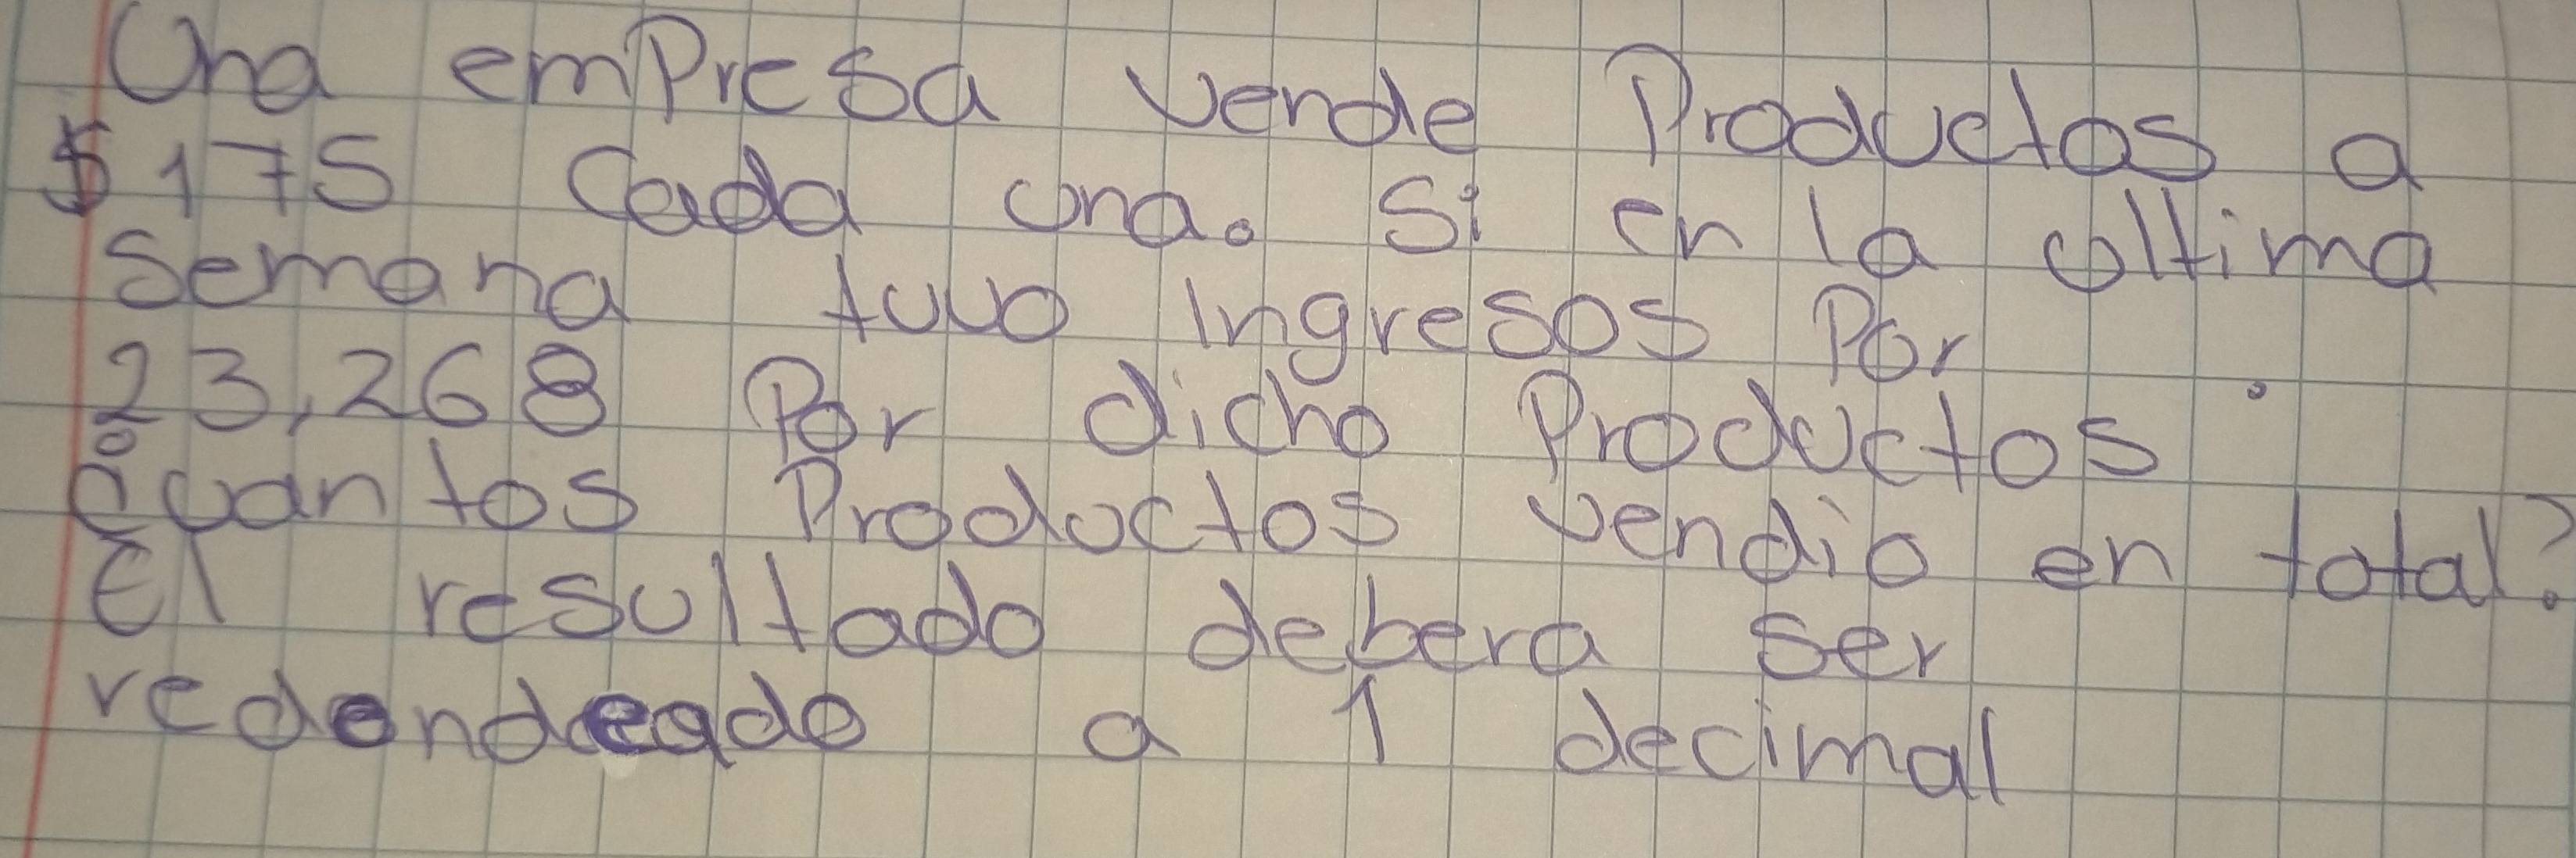 Una empresa vende Productos a
$175 Cada una. Si en la ultima
Semana tuvo Ingresos Por
23,268 Por dicho Productos
¿cuantos Productos vendio en total?
El resultado debera ser
redondeado a 1 decimal